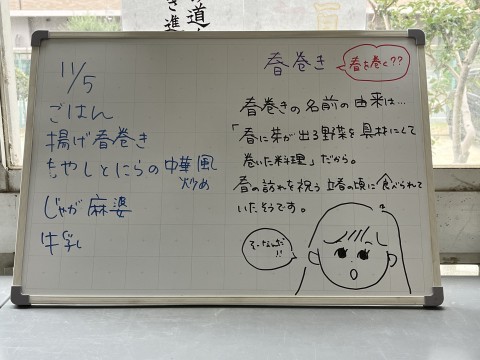 道
き進
11/5
ごはん
揚げ春巻き
もやしとにらの中華風
炒め
じゃが麻婆
牛乳
春巻き
春を巻く??
春巻きの名前の由来は…
「春に芽が出る野菜を具材にして
巻いた料理」だから。
春の訪れを祝う立春の頃に食べられて
いたそうです。
そーなんだ!!